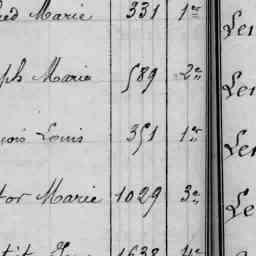 Marie 331 1er Ler
ph Marie 589 2e Ler
çois Louis 351 1er Ler
tor Marie 1029 3e Le
1638 4e